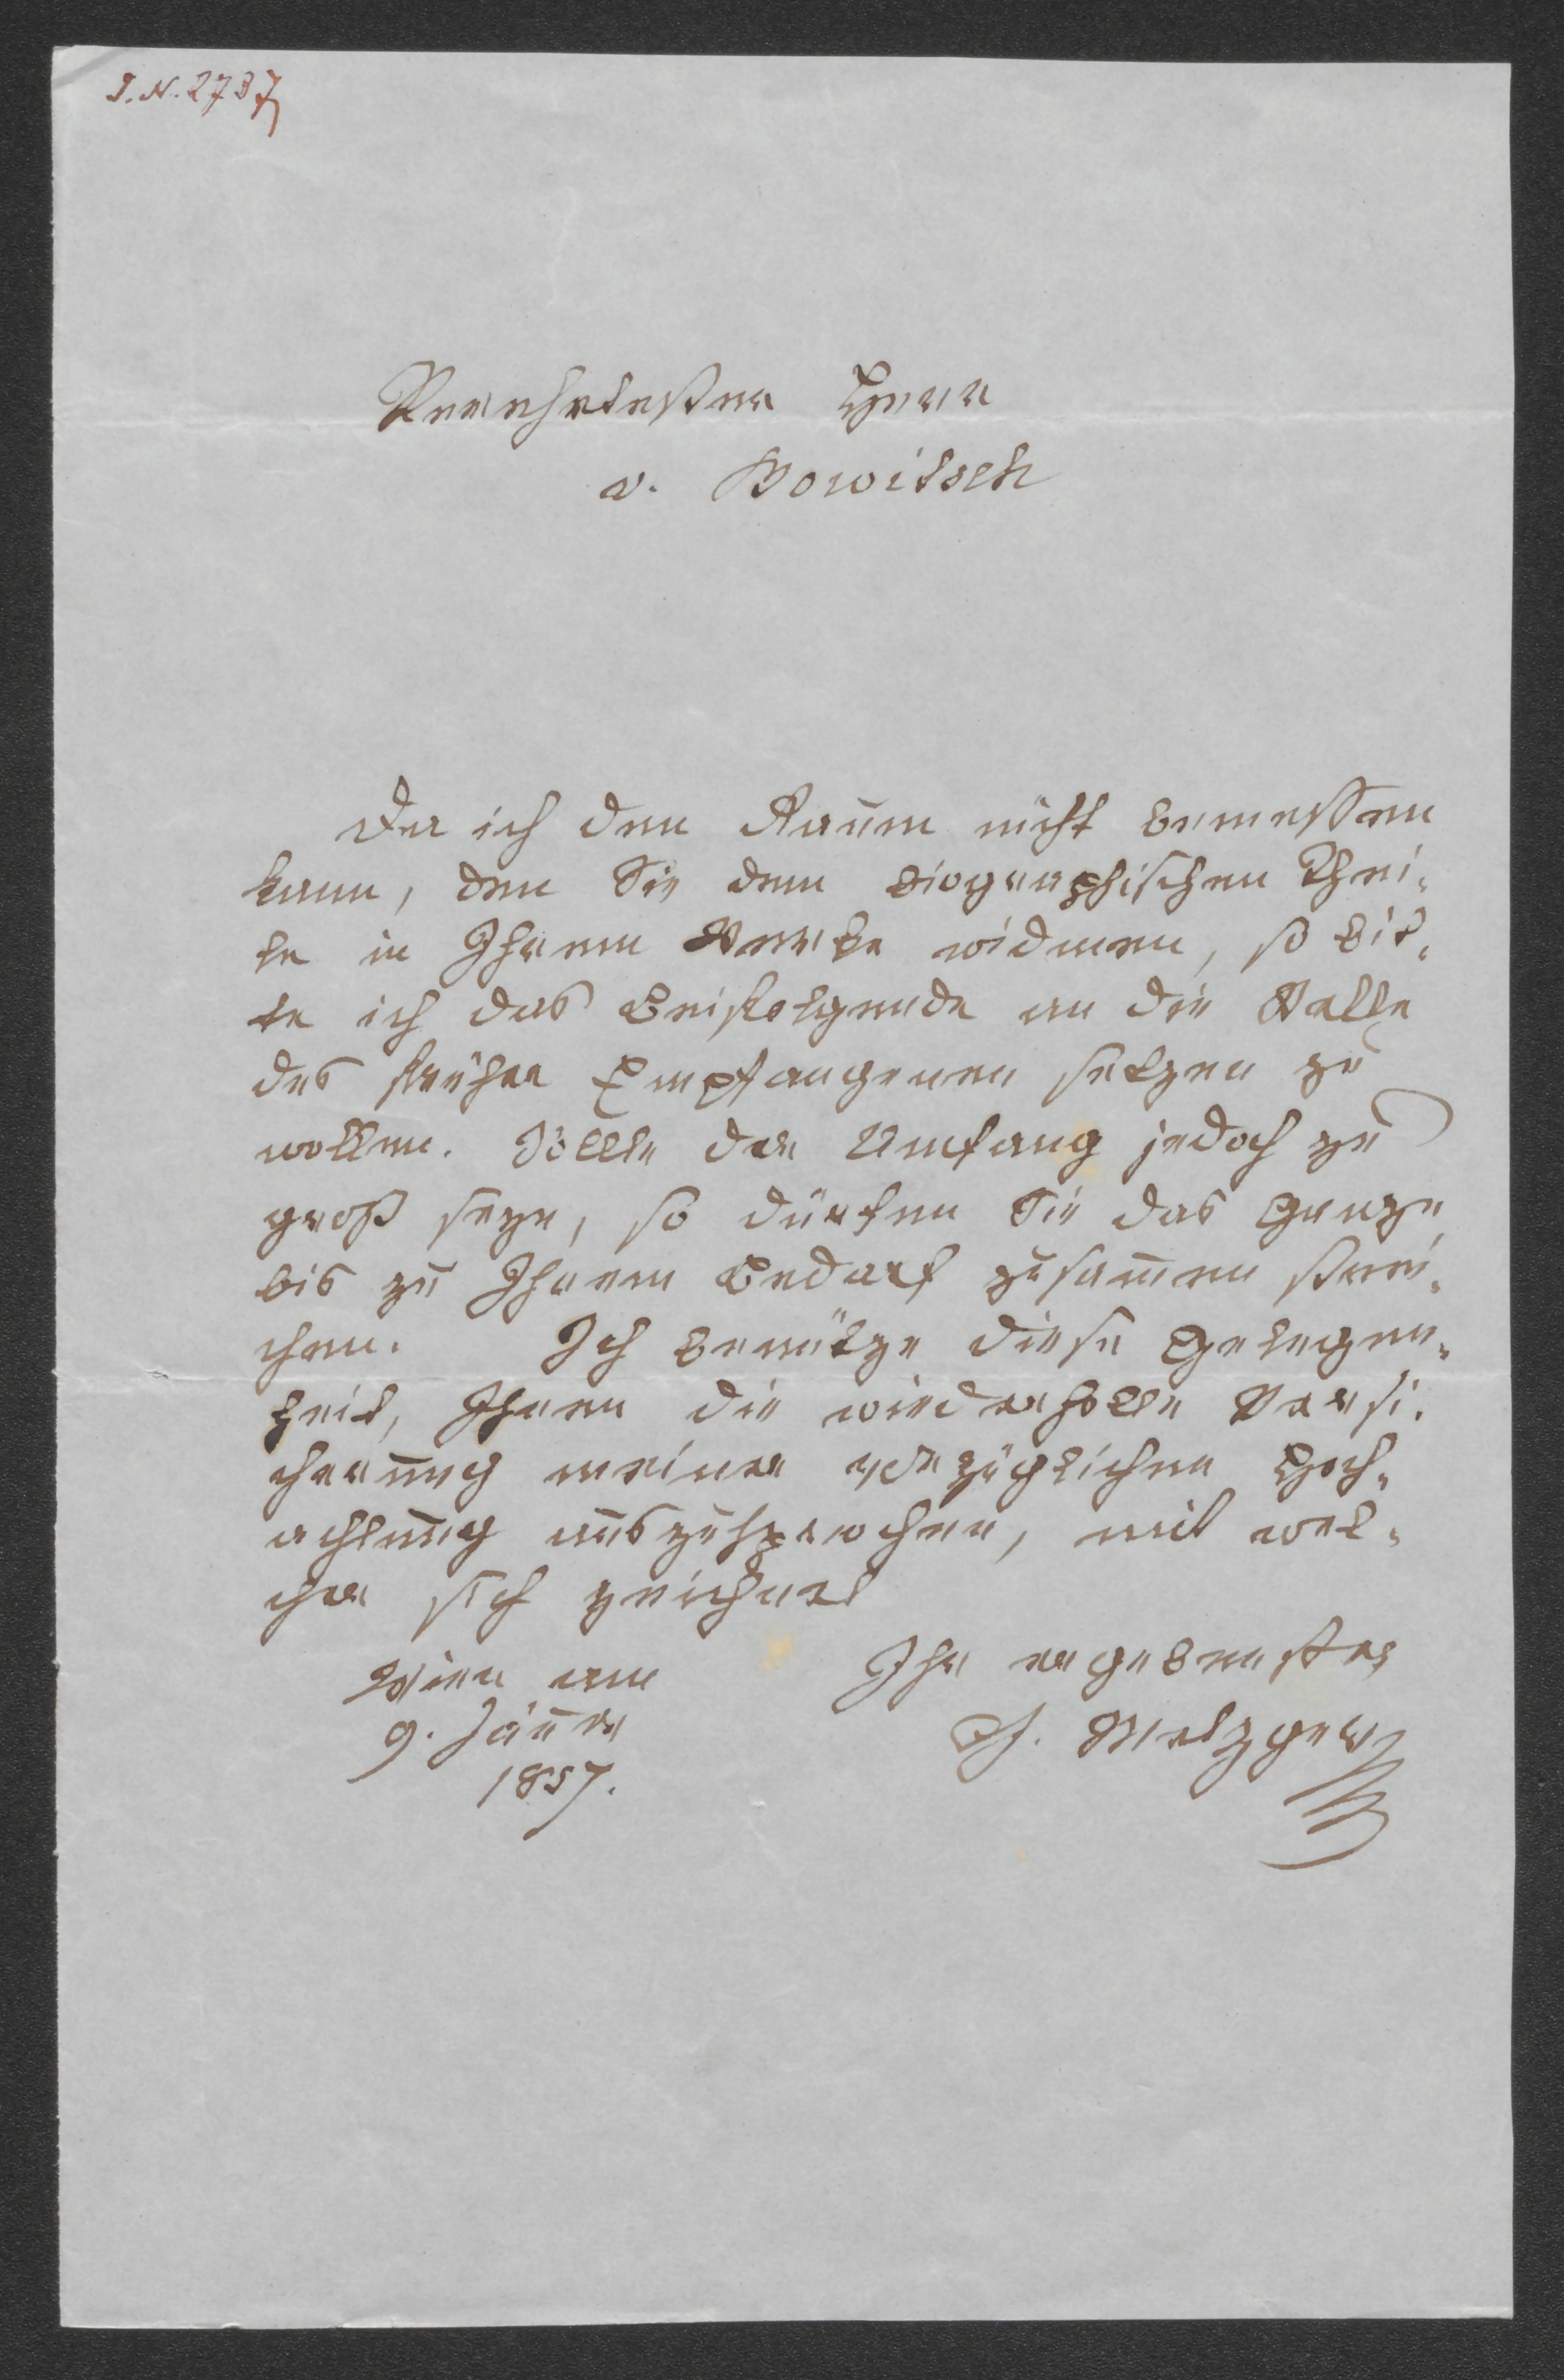 I.N. 2787
Verehrtester Herr
v. Bowitsch
Da ich den Raum nicht bemessen
kann, den Sie dem biographischen Thei-
le in Ihrem Werke widmen, so bit-
te ich das Beifolgende an die Stelle
des früher Empfangenen setzen zu
wollen. Sollte der Umfang jedoch zu
groß seyn, so dürfen Sie das Ganze
bis zu Ihrem Bedarf zusammen strei-
chen. Ich benütze diese Gelegen-
heit, Ihnen die wiederholte Versi-
cherung meiner vorzüglichen Hoch-
achtung auszusprechen, mit wel-
cher sich zeichnet
Wien am
9. Jänner
1857.
Ihr ergebenster
J. Metzger